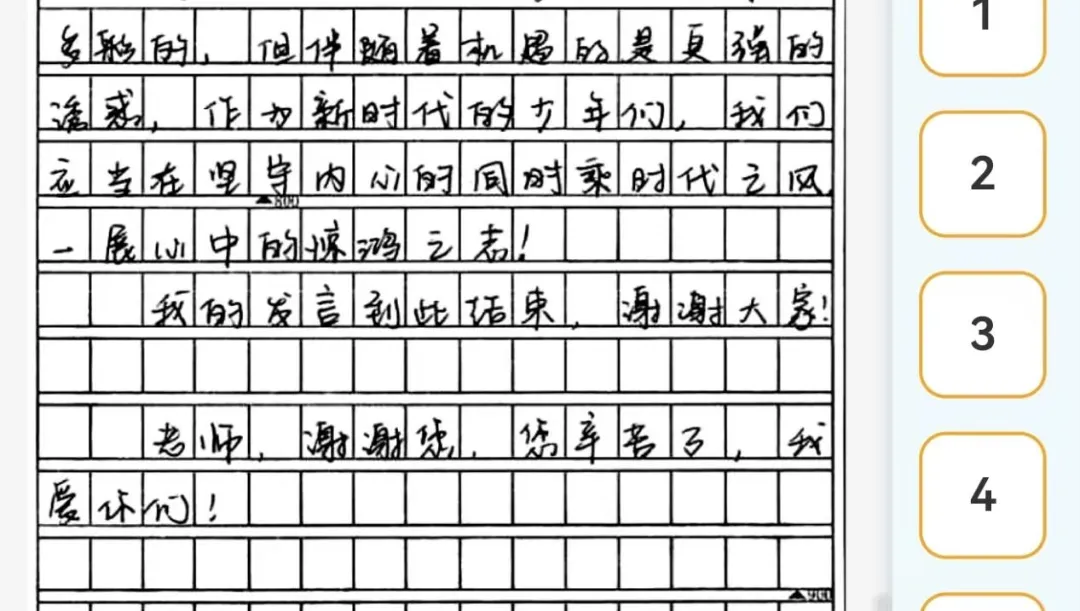 多彩的，但伴随着机遇的是更强的
诱惑，作为新时代的少年们，我们
应当在坚守内心的同时乘时代之风，
▲800
一展心中的惊鸿之志！
我的发言到此结束，谢谢大家！
老师，谢谢您，您辛苦了，我
爱你们！
▲900
1
2
3
4